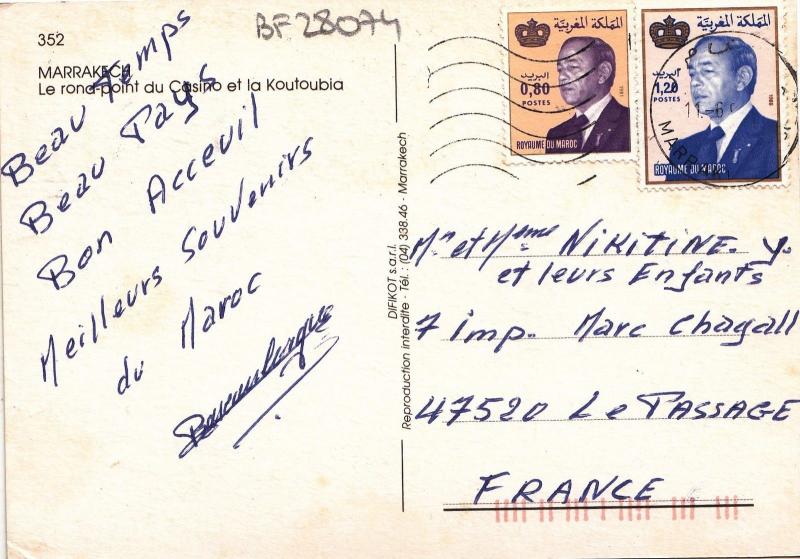 BF28074
352
MARRAKECH
Le rond-point du Casino et la Koutoubia
Beau Temps
Beau Pays
Bon Acceuil
Meilleurs Souvenirs
du Maroc
DIFIKOT s.a.r.l.
Reproduction interdite - Tél.: (04) 338.46 - Marrakech
المملكة المغربية
البريد
0,80
POSTES
1981
ROYAUME DU MAROC
المملكة المغربية
البريد
1,20
POSTES
1988
ROYAUME DU MAROC
11-6
Mr et Mme NIKITINE. y.
et leurs Enfants
7 imp. Marc Chagall
47520 Le PASSAGE
FRANCE